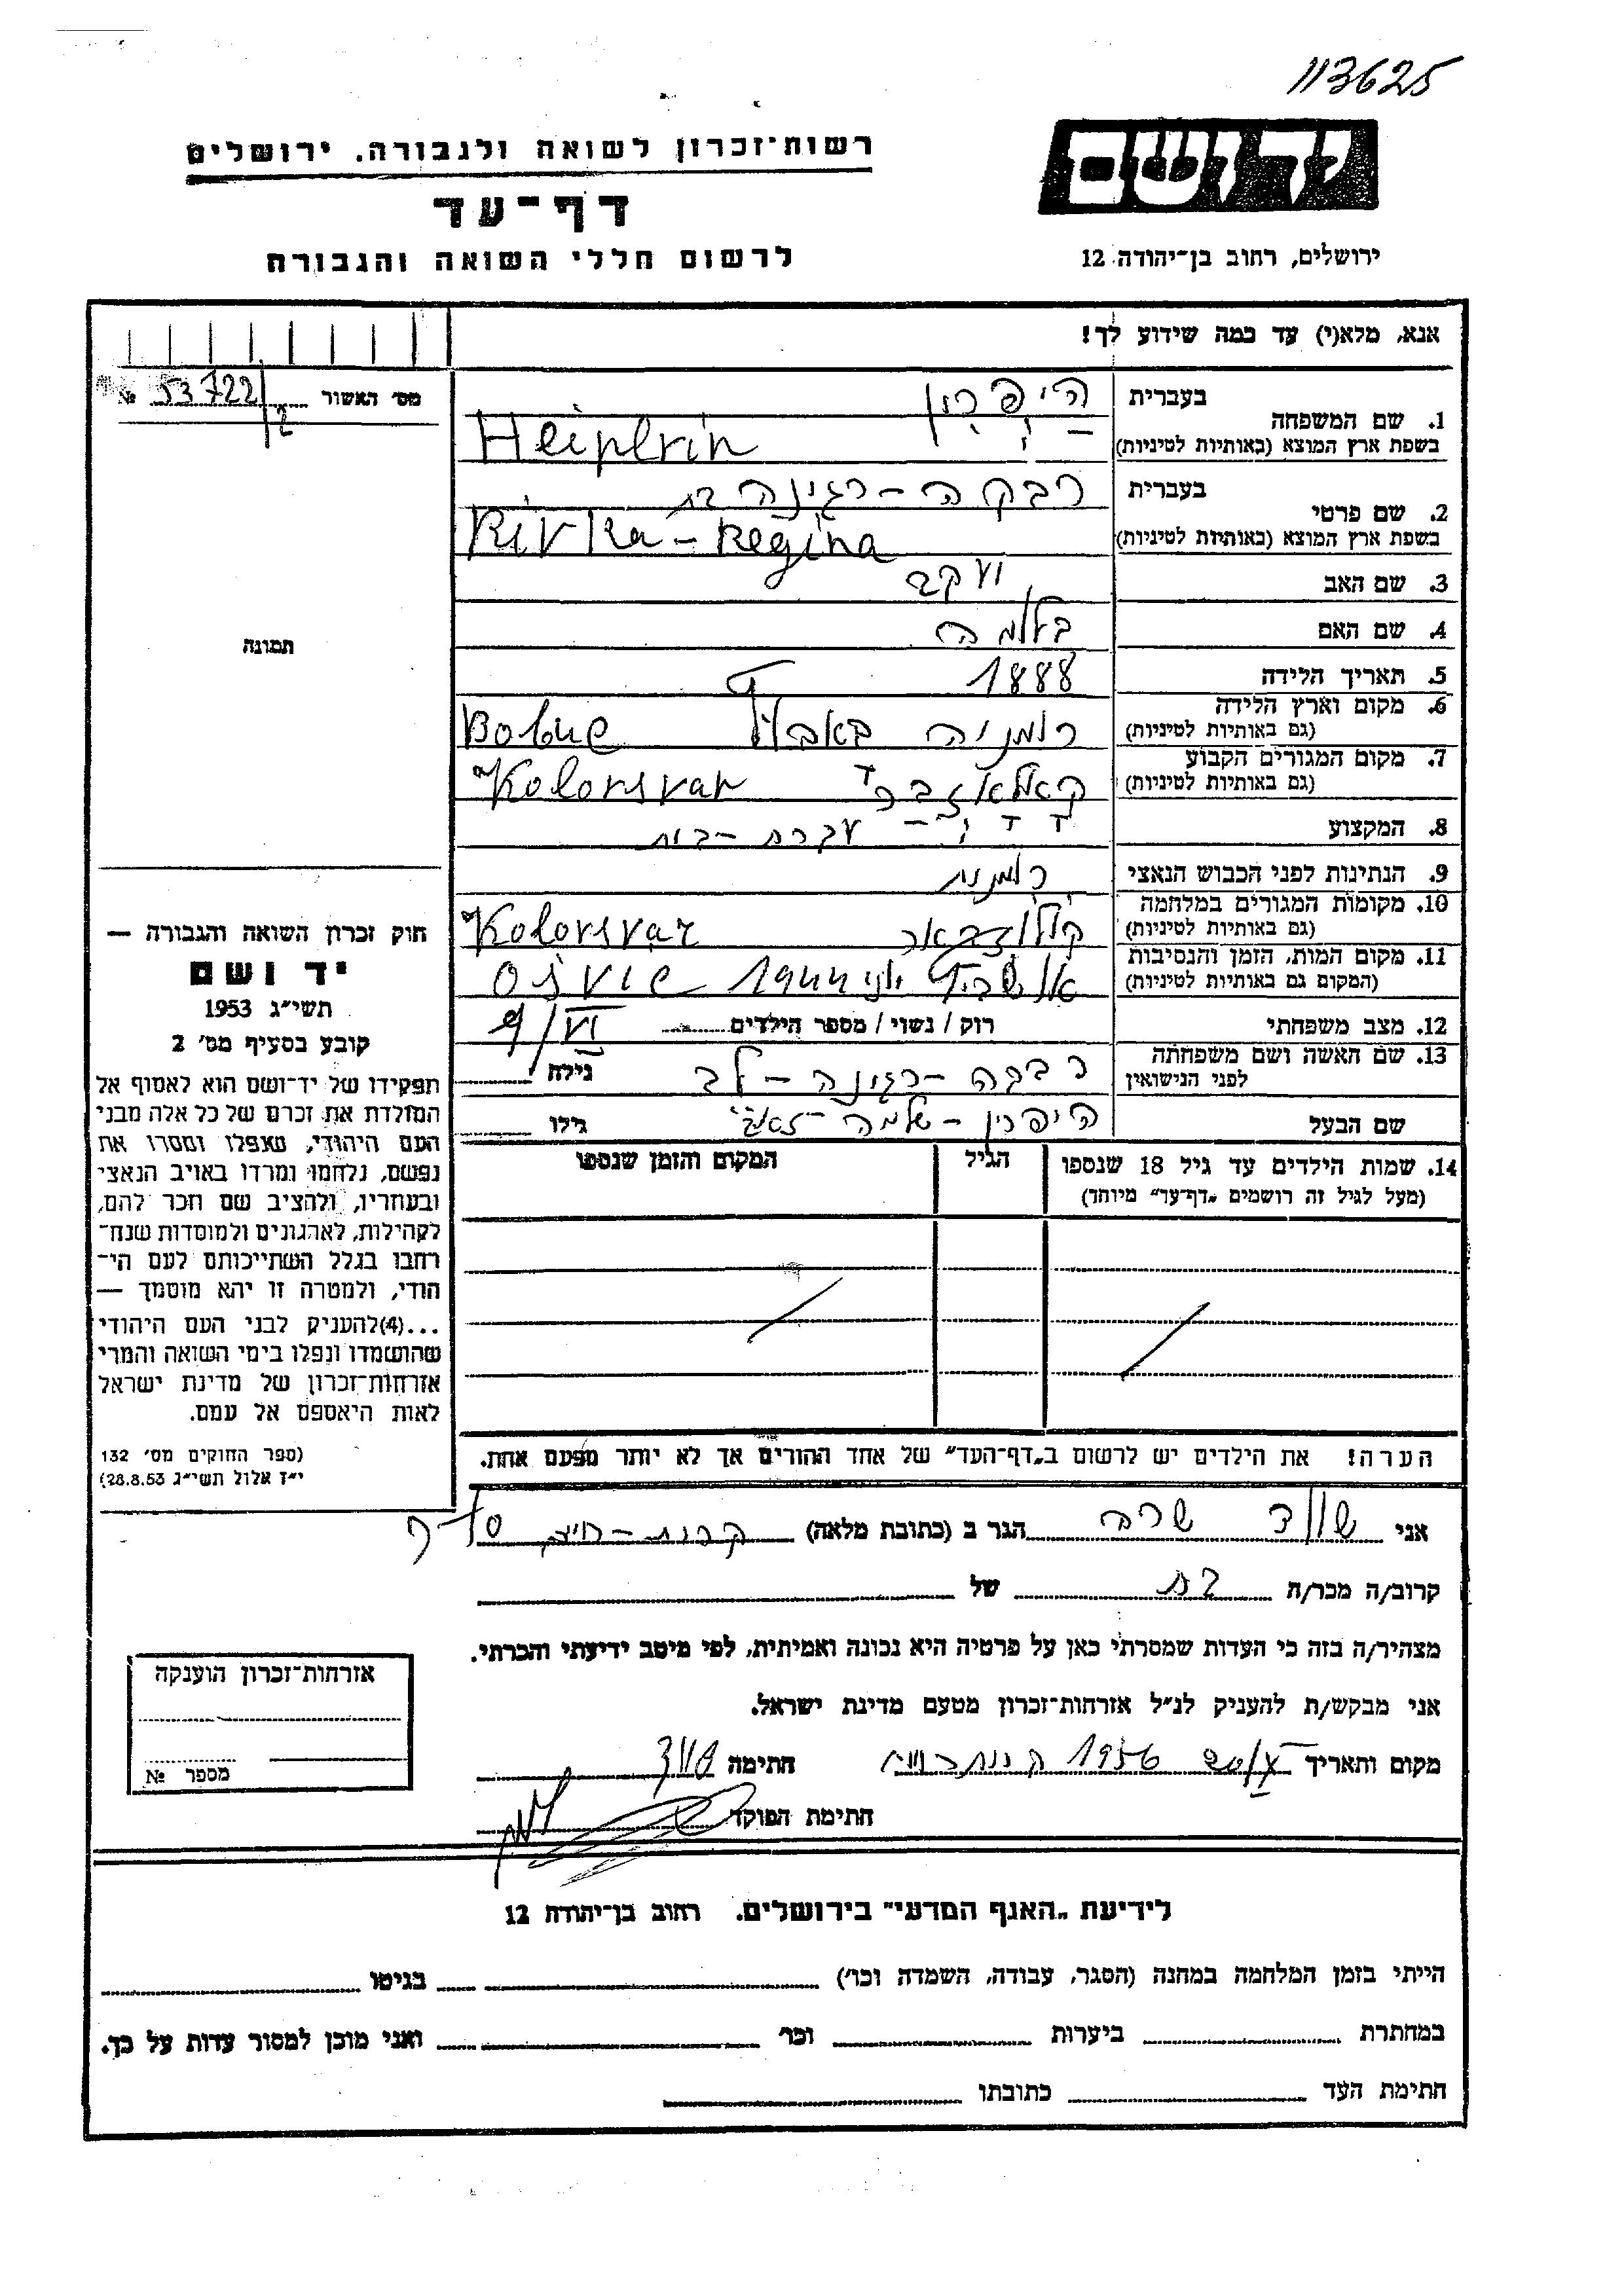 113625
יד ושם
רשות־זכרון לשואה ולגבורה. ירושלים
דף־עד
לרשום חללי השואה והגבורה
ירושלים, רחוב בן־יהודה 12
אנא, מלא(י) עד כמה שידוע לך!
מס׳ האשור 53722/2 №
תמונה
1. שם המשפחה
בעברית היפרין
בשפת ארץ המוצא (באותיות לטיניות) Heiplrin
2. שם פרטי
בעברית רבקה – רגינה בת
בשפת ארץ המוצא (באותיות לטיניות) Rivka – Regina
3. שם האב יעקב
4. שם האם
5. תאריך הלידה 1888
6. מקום וארץ הלידה
(גם באותיות לטיניות) רומניה
7. מקום המגורים הקבוע
(גם באותיות לטיניות) Kolorsvar
8. המקצוע עקרת – בית
9. הנתינות לפני הכבוש הנאצי רומנית
10. מקומות המגורים במלחמה
(גם באותיות לטיניות) Kolorsvar
11. מקום המות, הזמן והנסיבות
(המקום גם באותיות לטיניות) יוני 1944 Osvic
12. מצב משפחתי רוק / נשוי / מספר הילדים 9/VI
13. שם האשה ושם משפחתה
לפני הנישואין רבקה – רגינה – לב גילה
שם הבעל היפרין – שלמה גילו
14. שמות הילדים עד גיל 18 שנספו
(מעל לגיל זה רושמים „דף־עד״ מיוחד)
הגיל
המקום והזמן שנספו
הערה! את הילדים יש לרשום ב„דף־העד״ של אחד ההורים אך לא יותר מפעם אחת.
חוק זכרון השואה והגבורה —
יד ושם
תשי״ג 1953
קובע בסעיף מס׳ 2
תפקידו של יד־ושם הוא לאסוף אל
המולדת את זכרם של כל אלה מבני
העם היהודי, שנפלו ומסרו את
נפשם, נלחמו ומרדו באויב הנאצי
ובעוזריו, ולהציב שם וזכר להם,
לקהילות, לארגונים ולמוסדות שנח־
רחבו בגלל השתייכותם לעם הי־
הודי, ולמטרה זו יהא מוסמך —
...(4)להעניק לבני העם היהודי
שהושמדו ונפלו בימי השואה והמרי
אזרחות־זכרון של מדינת ישראל
לאות היאספם אל עמם.
(ספר החוקים מס׳ 132
י״ז אלול תשי״ג 28.8.53)
אני שרה הגר ב (כתובת מלאה) קרית – חיים
קרוב/ה מכר/ה בת של
מצהיר/ה בזה כי העדות שמסרתי כאן על פרטיה היא נכונה ואמיתית, לפי מיטב ידיעתי והכרתי.
אני מבקש/ת להעניק לנ״ל אזרחות־זכרון מטעם מדינת ישראל.
מקום ותאריך 1956 חתימה
חתימת הפוקד
אזרחות־זכרון הוענקה
מספר №
לידיעת „האגף המדעי״ בירושלים. רחוב בן־יהודה 12
הייתי בזמן המלחמה במחנה (הסגר, עבודה, השמדה וכו׳) בגיטו
במחתרת ביערות וכו׳ ואני מוכן למסור עדות על כך.
חתימת העד כתובתו